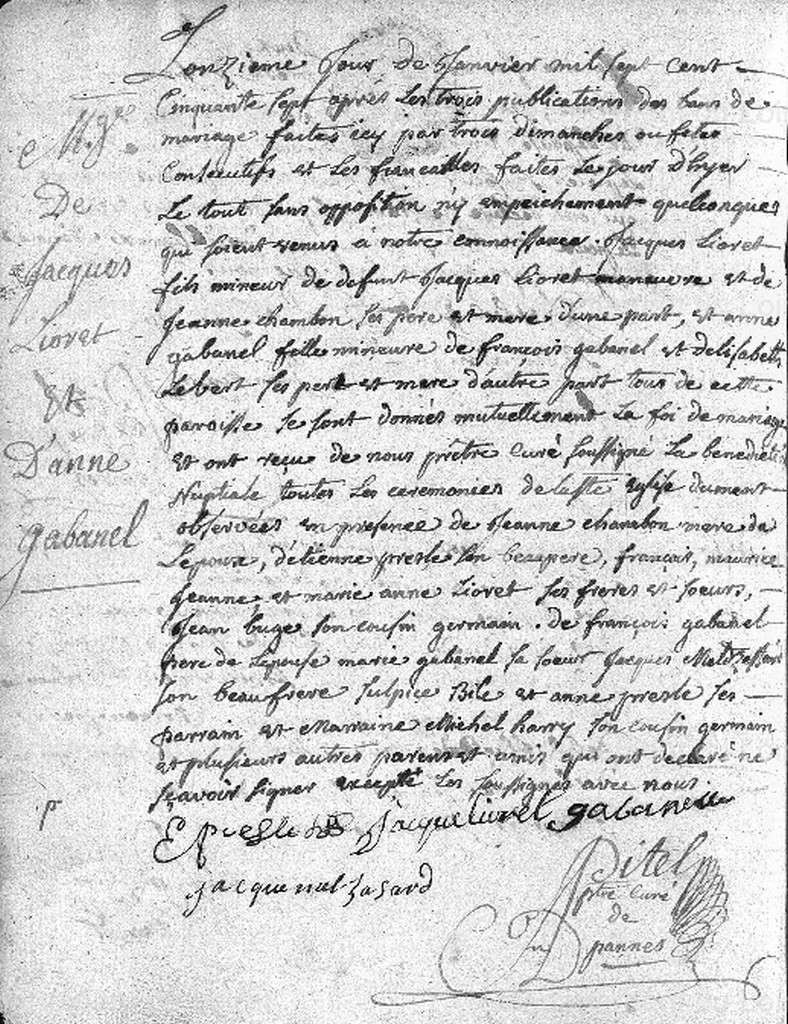 M.ge
De
Jacques
Lioret
Et
D'anne
gabanel
Lonzieme Jour de Janvier mil sept cent
Cinquante sept après Les trois publications des bans de
mariage faites icy par trois dimanches ou fetes
Consecutifs et Les fiancailles faites Le jour D'hyer
Le tout sans opposition n'y empeichement quelconques
qui soient venus à notre connoissance. Jacques Lioret
fils mineur de defunt Jacques Lioret manœuvre et de
Jeanne chambon ses pere et mere d'une part, et anne
gabanel fille mineure de françois gabanel et delisabeth
Lebert ses pere et mere d'autre part tous de cette
paroisse se sont donnés mutuellement La foi de mariage
et ont reçu de nous prêtre curé soussigné La benedicti
Nuptiale toutes Les ceremonies de laste Eglise dument
observées en presence de Jeanne chambon mere de
Lepoux, d'étienne presle son beaupere, françois, maurice
Jeanne et marie anne Lioret ses freres et soeurs,
Jean buge son cousin germain. de françois gabanel
pere de Lepouse marie gabanel sa soeur Jacques
son beaufrere sulpice Bile et anne presle ses
parrain et Marraine Michel harry son cousin germain
et plusieurs autres parens et amis qui ont declaré ne
sçavoir signer excepté Les soussignés avec nous.
p
E presle Jacque liorel gabanelle
Jacque mal hasard
Pitel
ptre curé
de
pannes